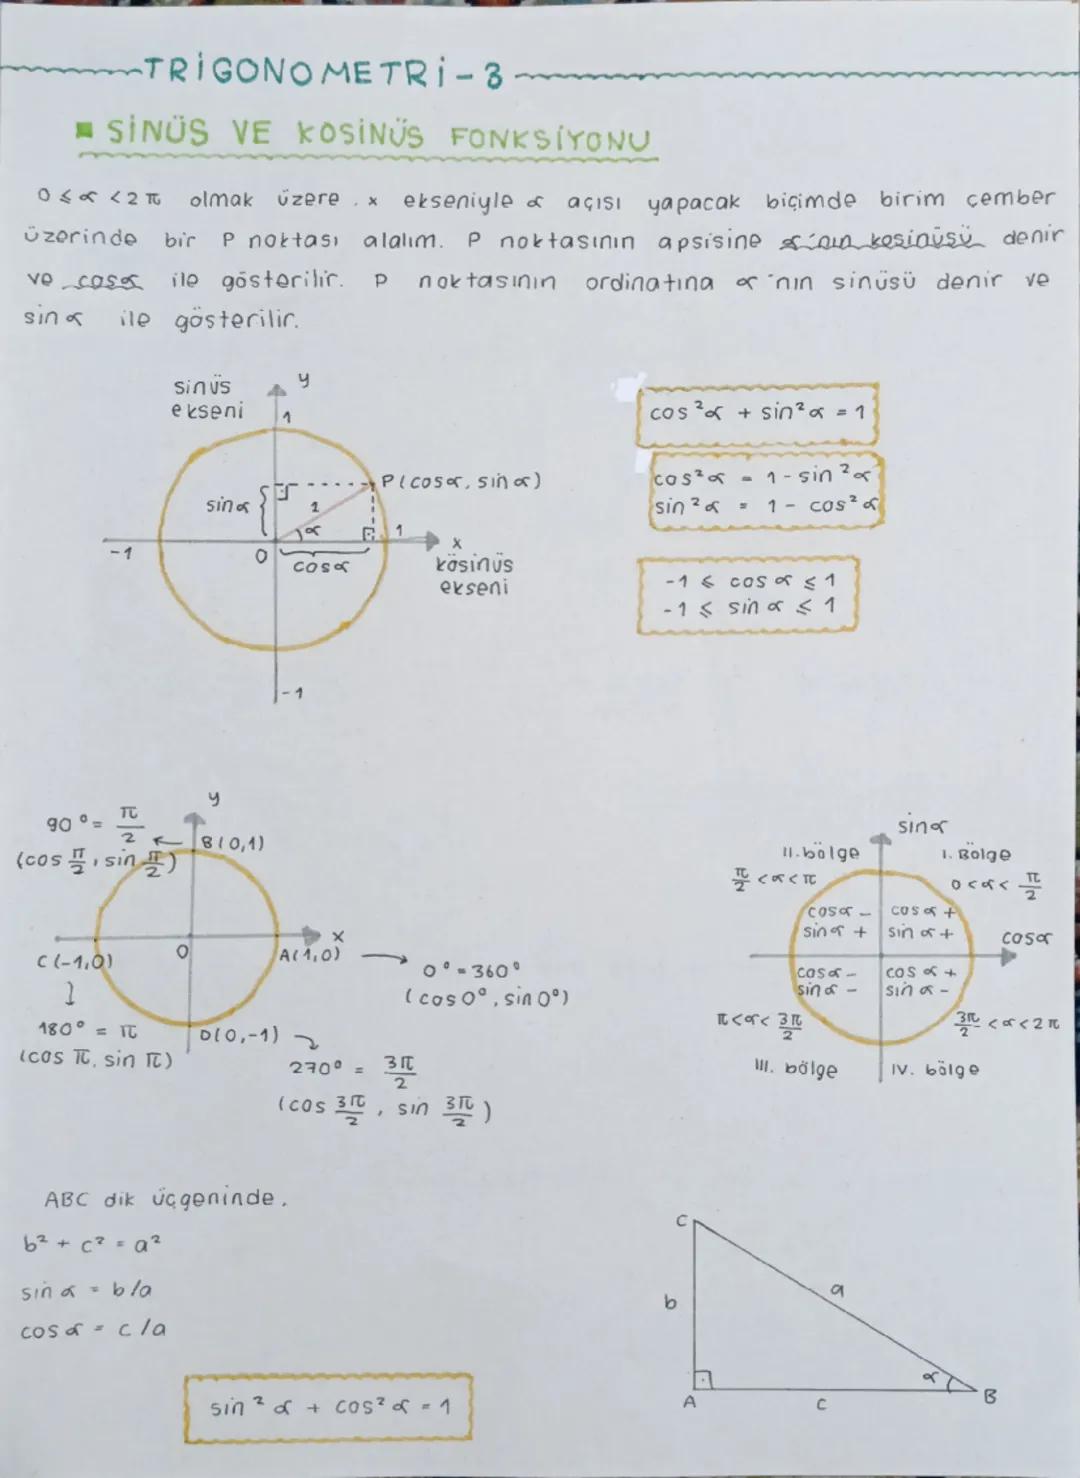 TRİGONOMETRİ-3
SİNÜS VE KOSİNÜS FONKSİYONU
0 ≤ α < 2π olmak üzere. x ekseniyle α açısı yapacak biçimde birim çember
üzerinde bir P noktası alalım. P noktasının apsisine α'nın kosinüsü denir
ve cosα ile gösterilir. P noktasının ordinatına α'nın sinüsü denir ve
sinα ile gösterilir.
sinüs
ekseni
y
1
P(cosα, sinα)
sinα
1
α
1
-1
0
cosα
x
kösinüs
ekseni
-1
cos²α + sin²α = 1
cos²α = 1 - sin²α
sin²α = 1 - cos²α
-1 ≤ cosα ≤ 1
-1 ≤ sinα ≤ 1
90° = π/2
(cos π/2, sin π/2)
y
B(0,1)
x
0
A(1,0)
C(-1,0)
0° = 360°
(cos0°, sin0°)
180° = π
(cos π, sin π)
D(0,-1)
270° = 3π/2
(cos 3π/2, sin 3π/2)
sinα
II. bölge
I. Bölge
π/2 < α < π
0 < α < π/2
cosα -
sinα +
cosα +
sinα +
cosα
cosα -
sinα -
cosα +
sinα -
π < α < 3π/2
3π/2 < α < 2π
III. bölge
IV. bölge
ABC dik üçgeninde.
b² + c² = a²
sinα = b/a
cosα = c/a
sin²α + cos²α = 1
C
a
b
α
A
c
B